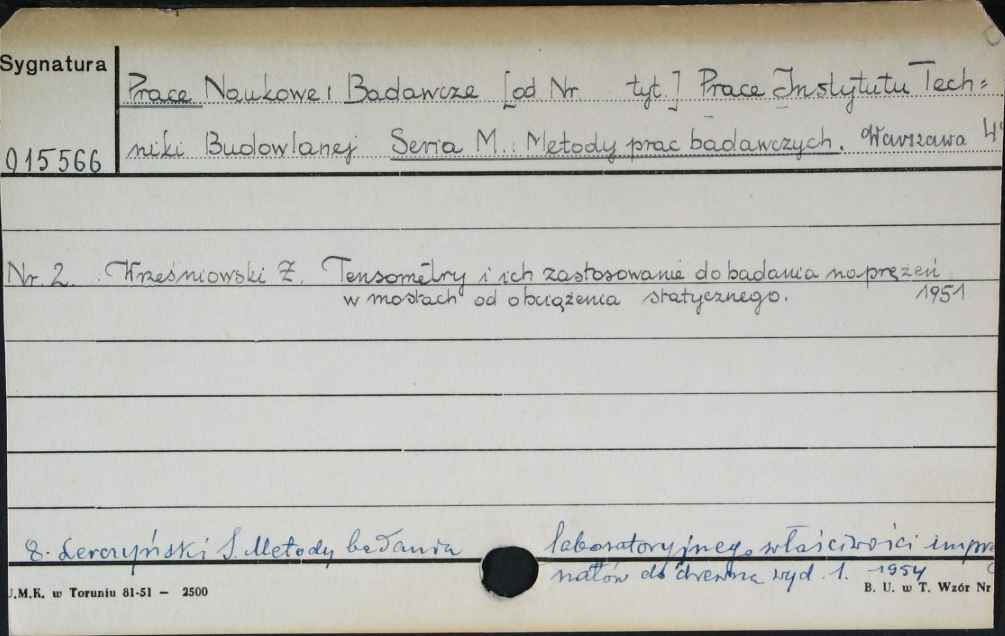 Sygnatura
Prace Naukowe i Badawcze [od Nr tyt.] Prace Instytutu Tech=
015566 niki Budowlanej Seria M.: Metody prac badawczych. Warszawa 4°
Nr. 2. Wrześniowski Z. Tensometry i ich zastosowanie do badania naprężeń
w mostach od obciążenia statycznego. 1951
8. Lerczyński S. Metody badania laboratoryjnego właściwości impreg
natów do drewna wyd. 1. 1954
U.M.K. w Toruniu 81-51 — 2500 B. U. w T. Wzór Nr